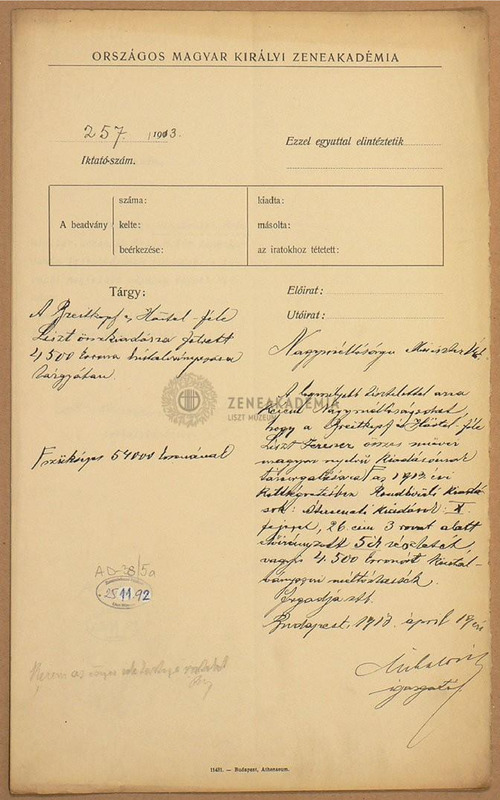 ORSZÁGOS MAGYAR KIRÁLYI ZENEAKADÉMIA
257 1913.
Iktató-szám.
Ezzel egyuttal elintéztetik
A beadvány
száma:
kelte:
beérkezése:
kiadta:
másolta:
az iratokhoz tétetett:
Tárgy:
A Breitkopf és Härtel féle
Liszt összkiadásra felvett
4,500 korona
tárgyában.
Előirat:
Utóirat:
Nagyméltóságu
A legmélyebb tisztelettel arra
kérem Nagyméltóságodat,
hogy a Breitkopf és Härtel féle
Liszt Ferencz összes művei
magyar nyelvű kiadásának
az 1913. évi
költségvetésben Rendkívüli Kiadá-
sok: Átmeneti kiadások: X.
fejezet, 26. cím 3 rovat alatt
előirányzott 5ik részletét,
vagyis 4.500 koronát kiutal-
ványozni méltóztassék.
Budapest, 1913. április 19én
Mihalovich
igazgató
ZENEAKADÉMIA
LISZT MÚZEUM
54000 koronával
AD-38/5a
25 11.92
11481. — Budapest, Athenaeum.